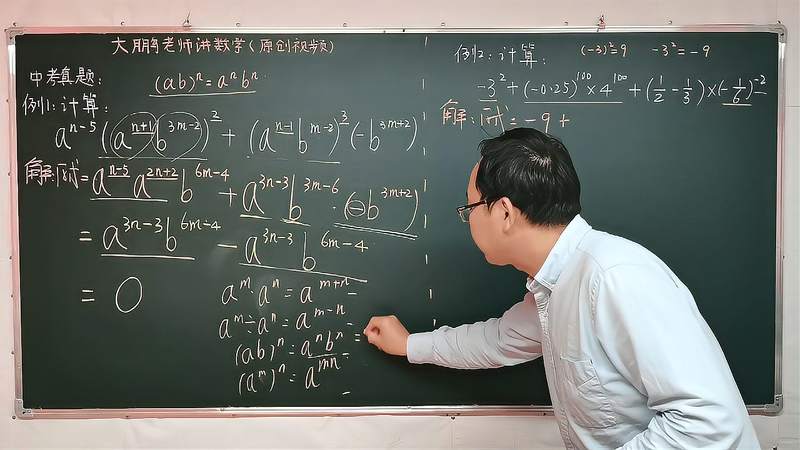 大鹏老师讲数学(原创视频)
中考真题:
(ab)ⁿ=aⁿbⁿ
例1:计算:
aⁿ⁻⁵(aⁿ⁺¹b³ᵐ⁻²)²+(aⁿ⁻¹bᵐ⁻²)³(-b³ᵐ⁺²)
解:原式=aⁿ⁻⁵a²ⁿ⁺²b⁶ᵐ⁻⁴+a³ⁿ⁻³b³ᵐ⁻⁶·(-b³ᵐ⁺²)
=a³ⁿ⁻³b⁶ᵐ⁻⁴-a³ⁿ⁻³b⁶ᵐ⁻⁴
=0
aᵐ·aⁿ=aᵐ⁺ⁿ
aᵐ÷aⁿ=aᵐ⁻ⁿ
(ab)ⁿ=aⁿbⁿ
(aᵐ)ⁿ=aᵐⁿ
例2:计算:
(-3)²=9 -3²=-9
-3²+(-0.25)¹⁰⁰×4¹⁰⁰+(1/2-1/3)×(-1/6)⁻²
解:原式=-9+